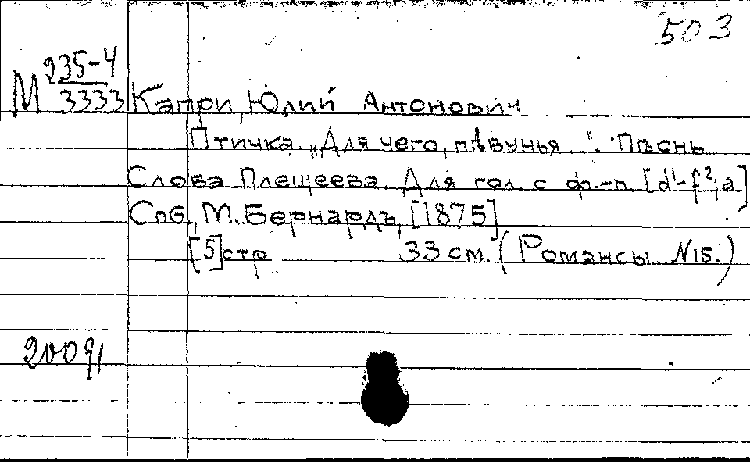 503
М 235-4
3333
Капри, Юлий Антонович
Птичка. „Для чего, пѣвунья...". Пѣснь
Слова Плещеева. Для гол. с ф.-п. [d¹-f²,a]
Спб., М. Бернардъ, [1875]
[5] стр 33 см. (Романсы №15.)